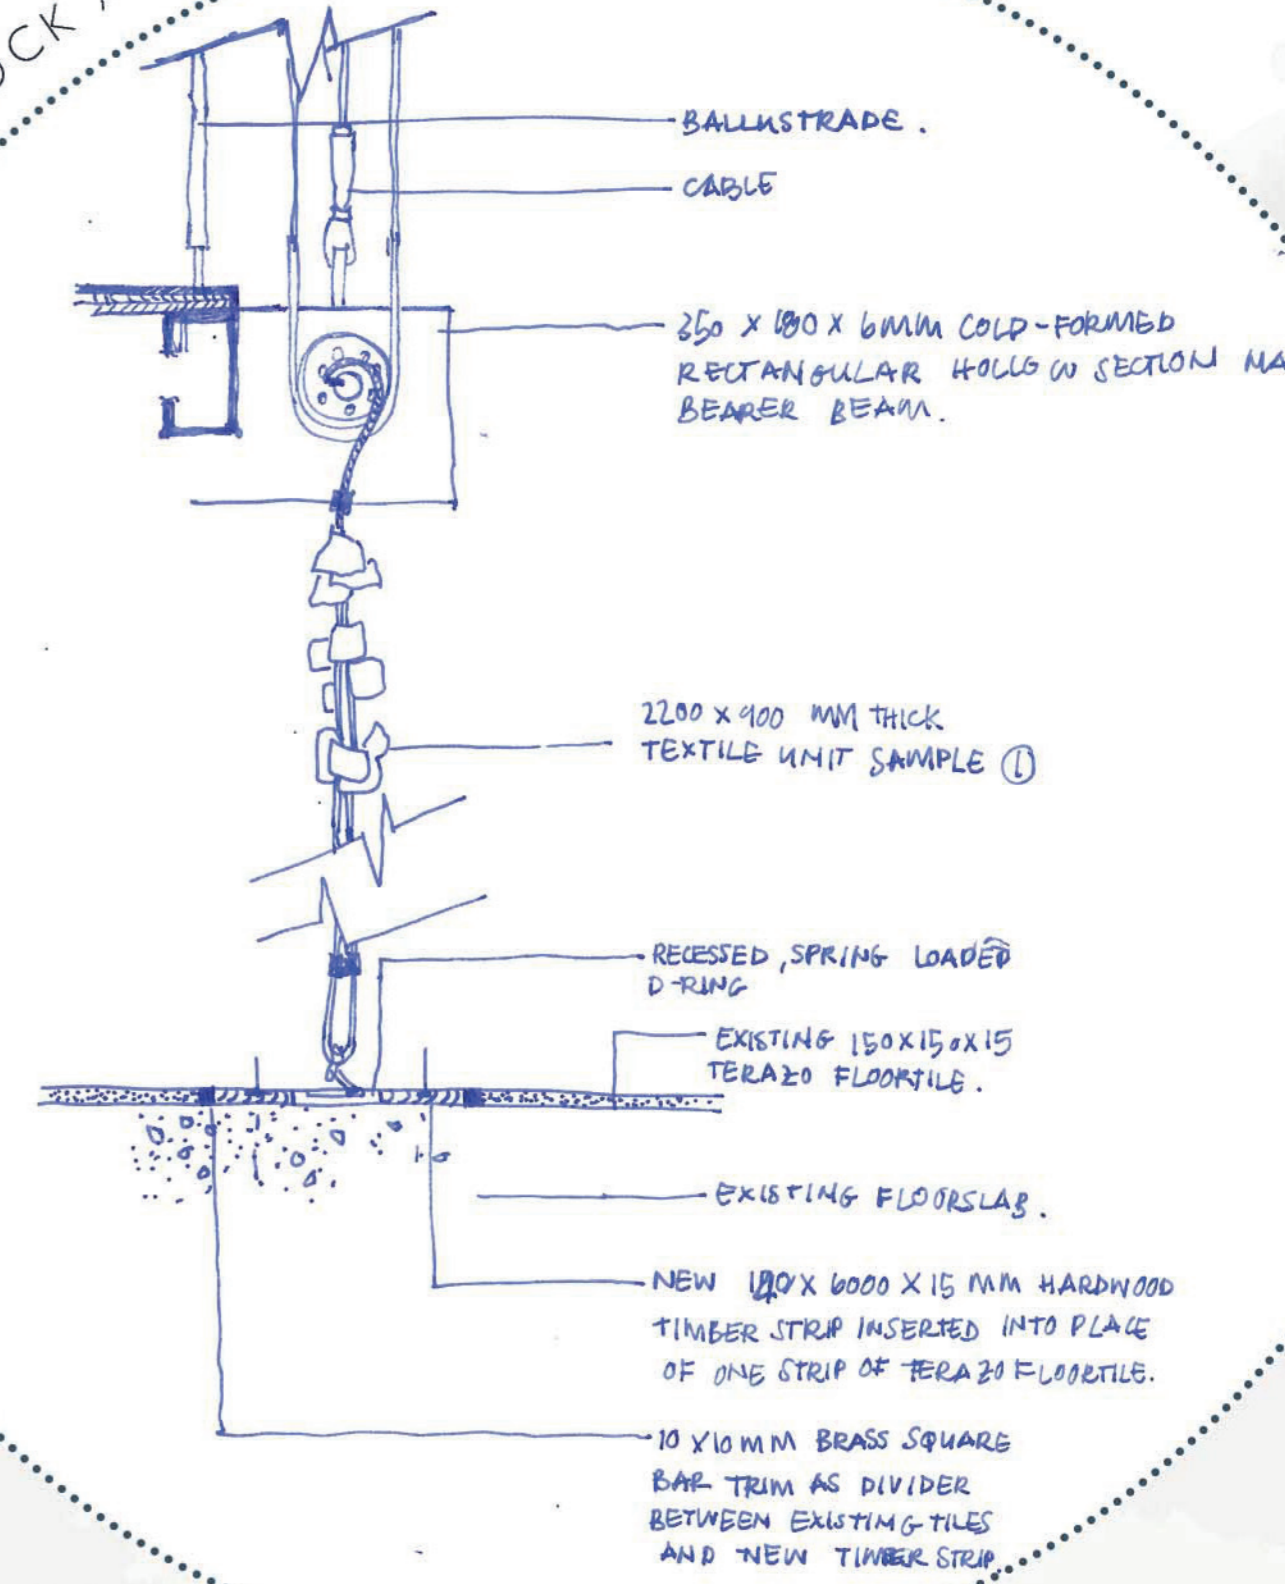 OCK
BALLUSTRADE.
CABLE
350 X 180 X 6MM COLD-FORMED
RECTANGULAR HOLLOW SECTION MA
BEARER BEAM.
2200 X 900 MM THICK
TEXTILE UNIT SAMPLE ①
RECESSED, SPRING LOADED
D-RING
EXISTING 150X150X15
TERAZO FLOORTILE.
EXISTING FLOORSLAB.
NEW X 6000 X 15 MM HARDWOOD
TIMBER STRIP INSERTED INTO PLACE
OF ONE STRIP OF TERAZO FLOORTILE.
10 X 10 MM BRASS SQUARE
BAR TRIM AS DIVIDER
BETWEEN EXISTING TILES
AND NEW TIMBER STRIP.